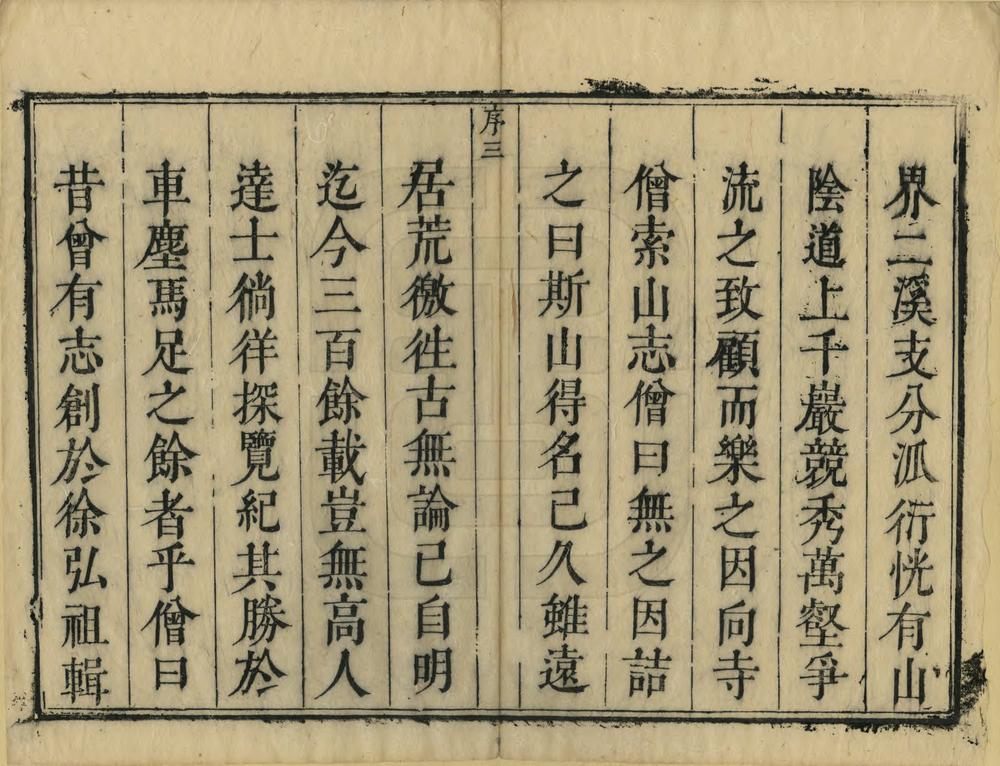 界二溪支分派衍恍有山
陰道上千巖競秀萬壑爭
流之致顧而樂之因向寺
僧索山志僧曰無之因詰
之曰斯山得名已久雖遠
序三
居荒徼徃古無論已自明
迄今三百餘載豈無高人
達士徜徉探覽紀其勝於
車塵馬足之餘者乎僧曰
昔曾有志創於徐弘祖輯